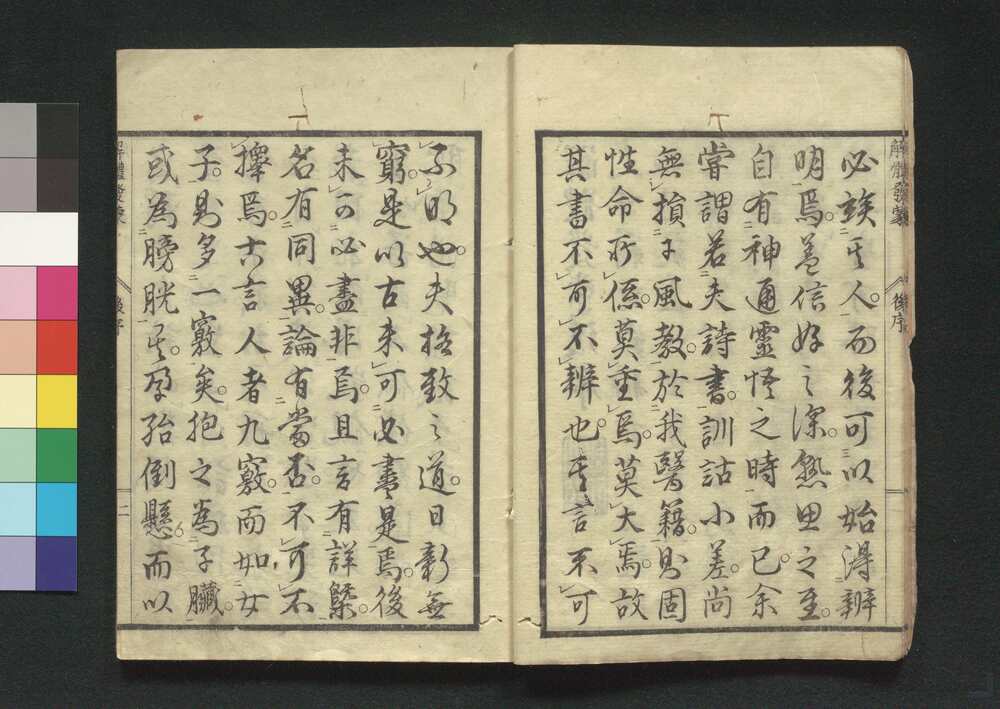 必竢其人而後可以始得辨
明焉蓋信好之深熟思之至
自有神通靈悟之時而已余
嘗謂若夫詩書訓詁小差尚
無損于風教於我醫籍則固
性命所係莫重焉莫大焉故
其書不可不辨也其言不可
不明也夫格致之道日新無
窮是以古未可必盡是焉後
未可必盡非焉且言有詳槩
名有同異論有當否不可不
擇焉古言人者九竅而如女
子則多一竅矣抱之為子臟
或為膀胱其孕殆倒懸而以
解體發蒙
後序
解體發蒙
後序
二